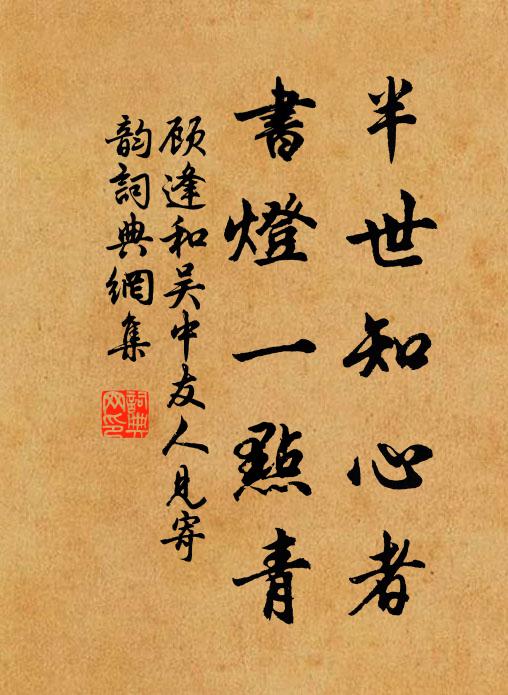 半世知心者
書燈一點青
顾逢和吴中友人見寄
韵詞典網集
詞典
网印